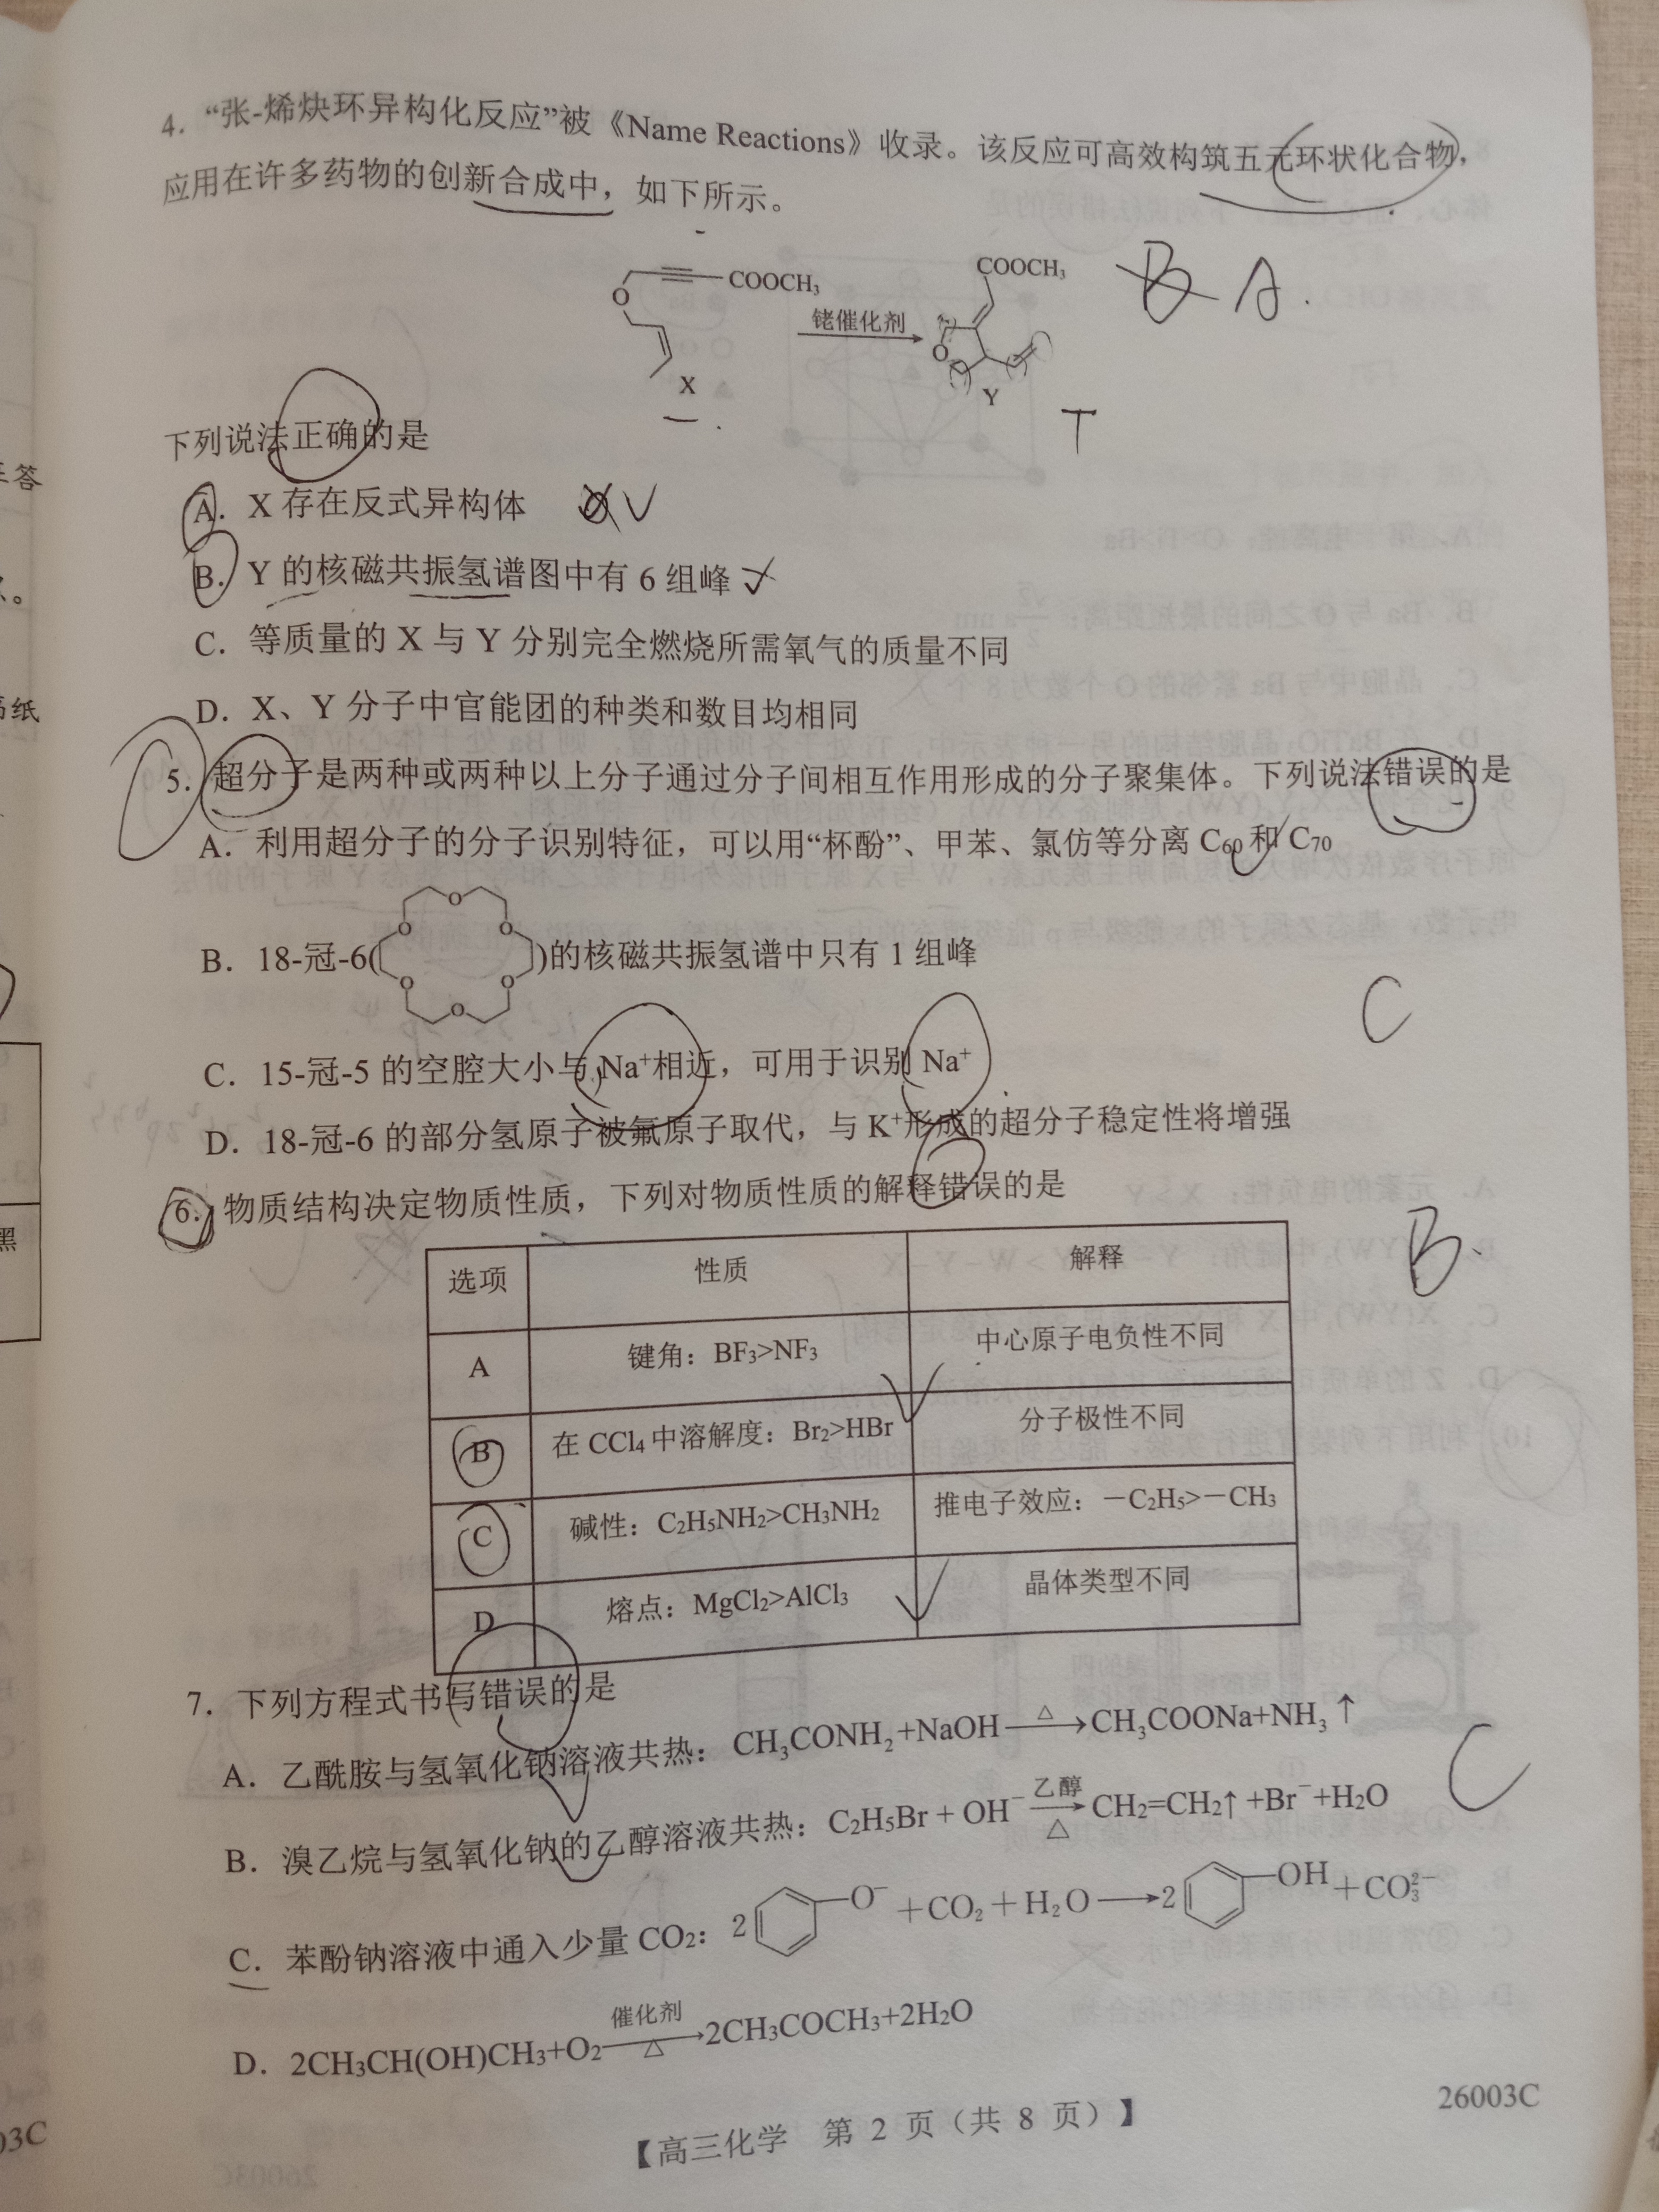 4. “张-烯炔环异构化反应”被《Name Reactions》收录。该反应可高效构筑五元环状化合物,
应用在许多药物的创新合成中，如下所示。
O
COOCH₃
X
铑催化剂
COOCH₃
O
Y
B A.
T
下列说法正确的是
A. X 存在反式异构体
B. Y 的核磁共振氢谱图中有 6 组峰
C. 等质量的 X 与 Y 分别完全燃烧所需氧气的质量不同
D. X、Y 分子中官能团的种类和数目均相同
5. 超分子是两种或两种以上分子通过分子间相互作用形成的分子聚集体。下列说法错误的是
A. 利用超分子的分子识别特征，可以用“杯酚”、甲苯、氯仿等分离 C₆₀ 和 C₇₀
B. 18-冠-6( O O O O O O )的核磁共振氢谱中只有 1 组峰
C. 15-冠-5 的空腔大小与 Na⁺相近，可用于识别 Na⁺
C
D. 18-冠-6 的部分氢原子被氟原子取代，与 K⁺形成的超分子稳定性将增强
6. 物质结构决定物质性质，下列对物质性质的解释错误的是
B.
选项 性质 解释
A 键角：BF₃>NF₃ 中心原子电负性不同
B 在 CCl₄ 中溶解度：Br₂>HBr 分子极性不同
C 碱性：C₂H₅NH₂>CH₃NH₂ 推电子效应：—C₂H₅>—CH₃
D 熔点：MgCl₂>AlCl₃ 晶体类型不同
7. 下列方程式书写错误的是
A. 乙酰胺与氢氧化钠溶液共热：CH₃CONH₂+NaOH—△→CH₃COONa+NH₃↑
C
B. 溴乙烷与氢氧化钠的乙醇溶液共热：C₂H₅Br + OH⁻ —乙醇/△→ CH₂=CH₂↑ +Br⁻+H₂O
C. 苯酚钠溶液中通入少量 CO₂：2 —O⁻ +CO₂+H₂O→2 —OH +CO₃²⁻
D. 2CH₃CH(OH)CH₃+O₂—催化剂/△→2CH₃COCH₃+2H₂O
26003C
【高三化学 第 2 页（共 8 页）】